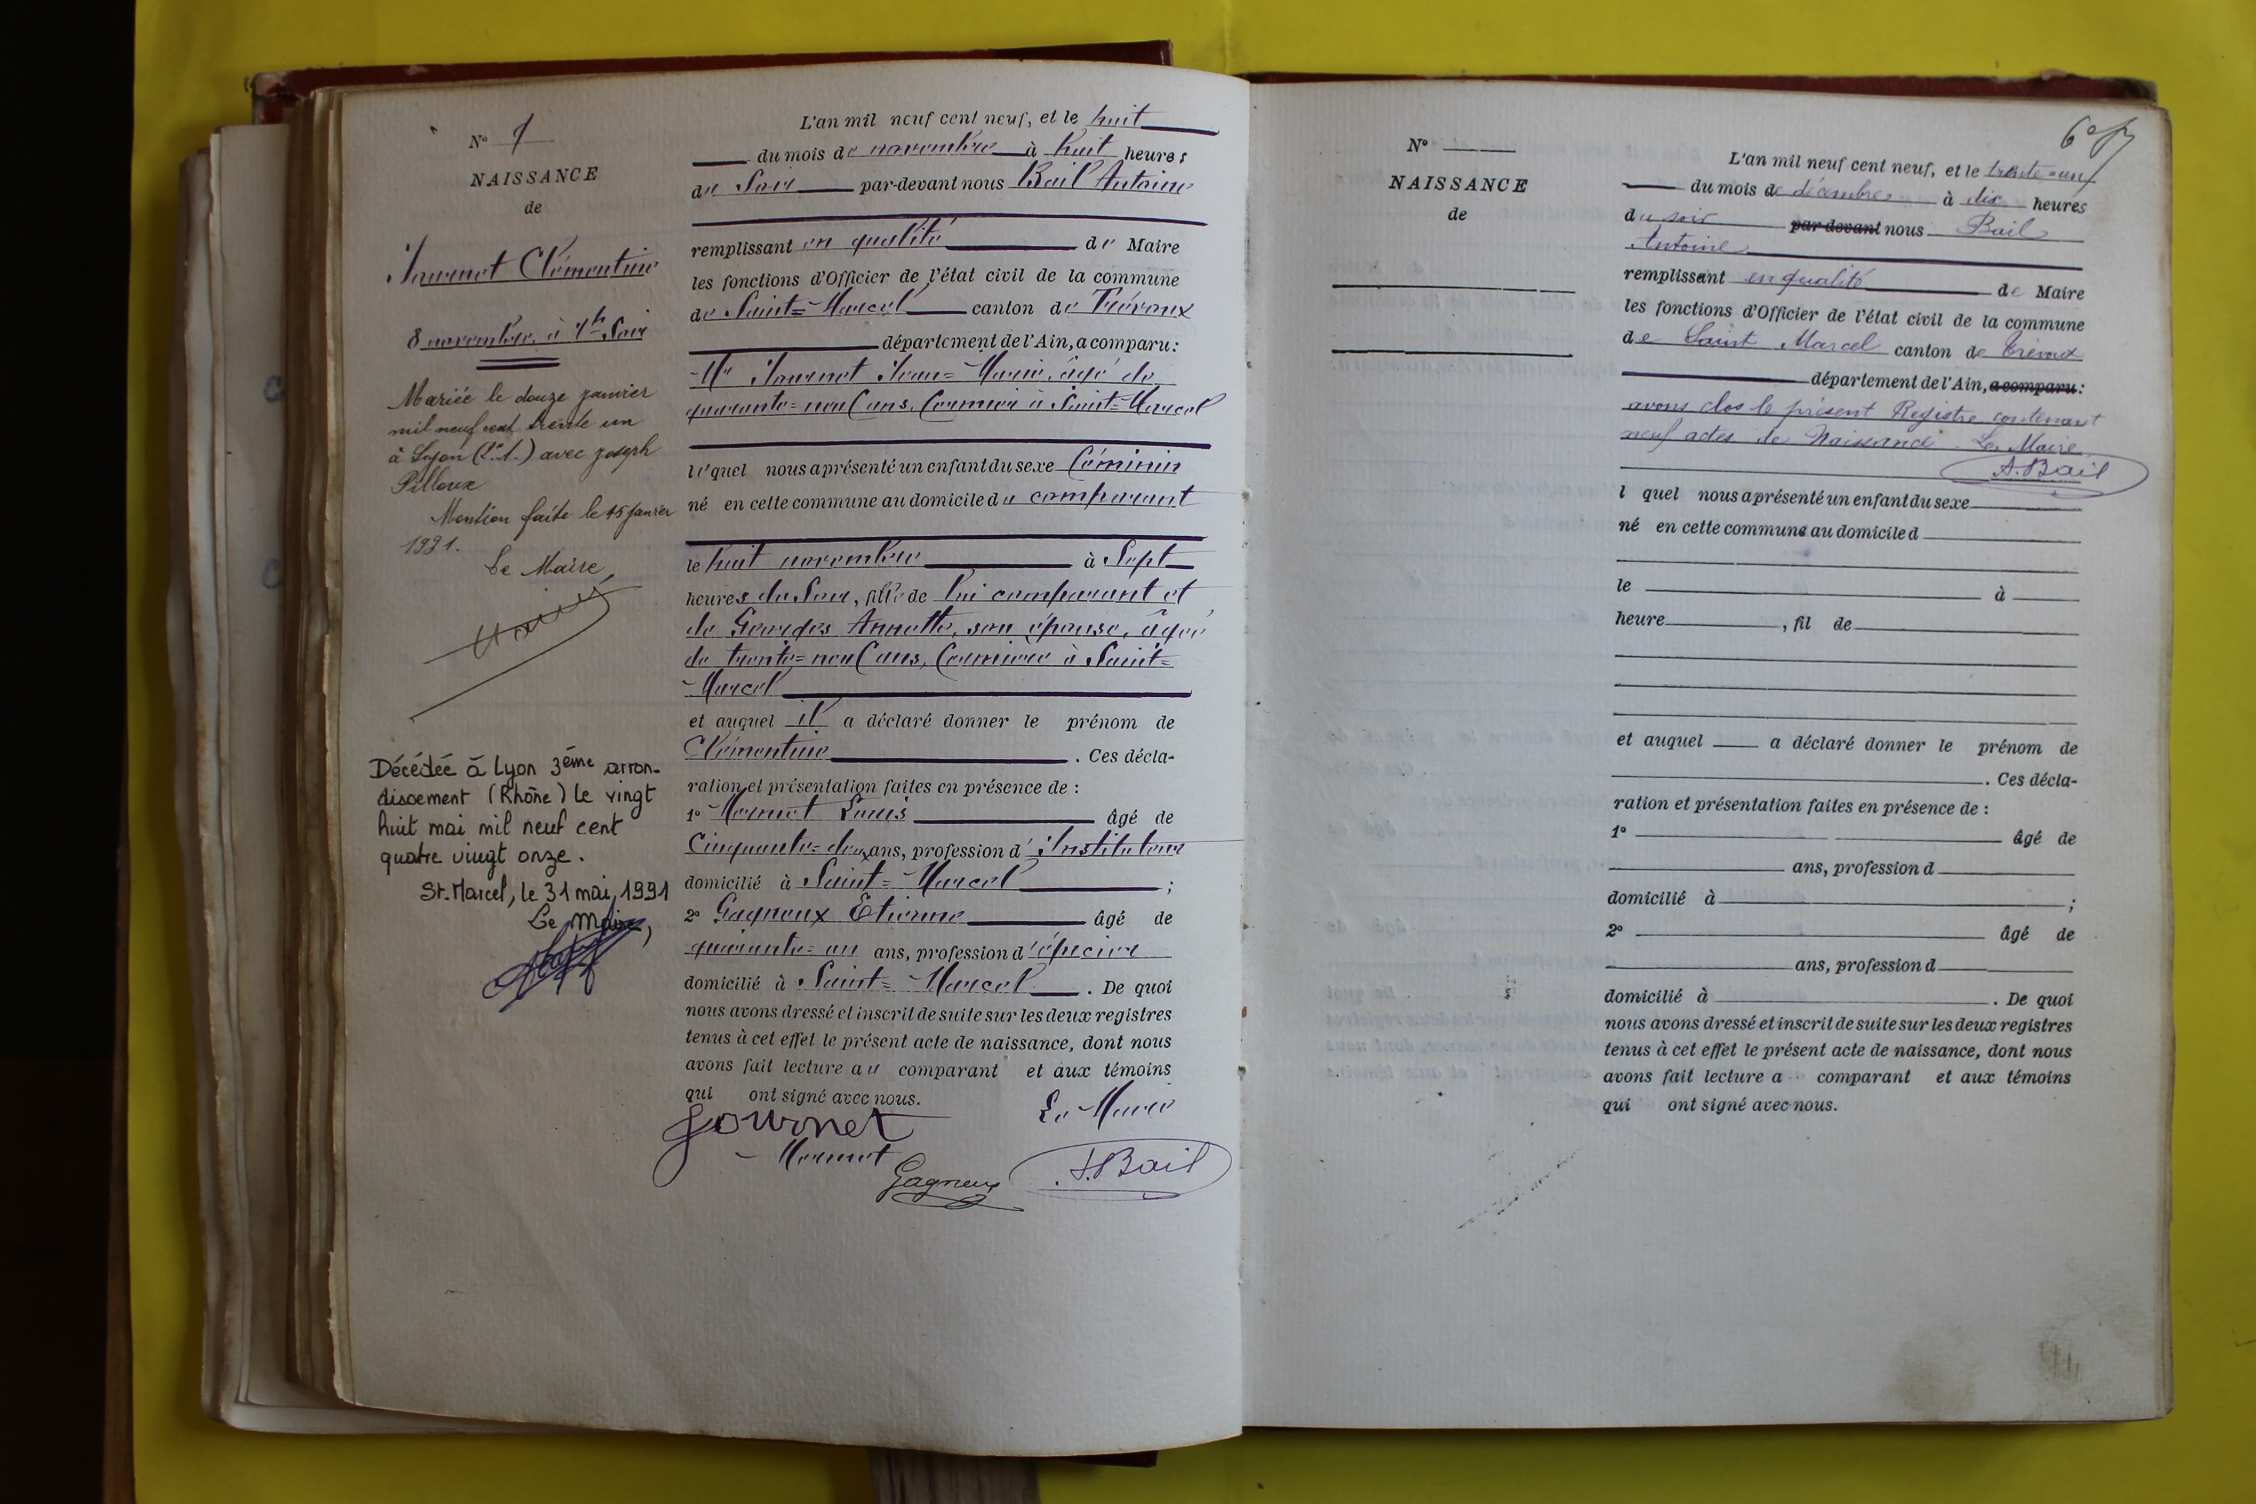 N° 9
NAISSANCE
de
Journet Clémentine
8 novembre à 7h Soir
Mariée le douze janvier
mil neuf cent trente un
à Lyon (2e A.) avec Joseph
Pilloux
Mention faite le 15 janvier
1931.
Le Maire,
Décédée à Lyon 3ème arron-
dissement (Rhône) le vingt
huit mai mil neuf cent
quatre vingt onze.
St. Marcel, le 31 mai 1991
Le Maire,
L'an mil neuf cent neuf, et le huit
du mois de novembre à huit heures
du Soir par-devant nous Bail Antoine
remplissant en qualité de Maire
les fonctions d'Officier de l'état civil de la commune
de Saint=Marcel canton de Trévoux
département de l'Ain, a comparu:
Mr Journet Jean=Marie, âgé de
quarante=neuf ans, fermier à Saint=Marcel
lequel nous a présenté un enfant du sexe féminin
né en cette commune au domicile du comparant
le huit novembre à Sept
heures du Soir, fille de lui comparant et
de Georges Annette, son épouse, âgée
de trente=neuf ans, fermière à Saint=
Marcel
et auquel il a déclaré donner le prénom de
Clémentine. Ces décla-
ration et présentation faites en présence de :
1° Mermet Louis âgé de
Cinquante=deux ans, profession d'Instituteur
domicilié à Saint=Marcel ;
2° Gagneux Etienne âgé de
quarante=un ans, profession d'épicier
domicilié à Saint=Marcel. De quoi
nous avons dressé et inscrit de suite sur les deux registres
tenus à cet effet le présent acte de naissance, dont nous
avons fait lecture au comparant et aux témoins
qui ont signé avec nous.
Le Maire
Journet
Mermet
Gagneux
A. Bail
N°
NAISSANCE
de
L'an mil neuf cent neuf, et le trente=un
du mois de décembre à dix heures
du soir par-devant nous Bail
Antoine
remplissant en qualité de Maire
les fonctions d'Officier de l'état civil de la commune
de Saint Marcel canton de Trévoux
département de l'Ain, a comparu :
avons clos le présent Registre contenant
neuf actes de Naissance. Le Maire,
A. Bail
l quel nous a présenté un enfant du sexe
né en cette commune au domicile d
le à
heure , fil de
et auquel a déclaré donner le prénom de
. Ces décla-
ration et présentation faites en présence de :
1° âgé de
ans, profession d
domicilié à ;
2° âgé de
ans, profession d
domicilié à . De quoi
nous avons dressé et inscrit de suite sur les deux registres
tenus à cet effet le présent acte de naissance, dont nous
avons fait lecture a comparant et aux témoins
qui ont signé avec nous.